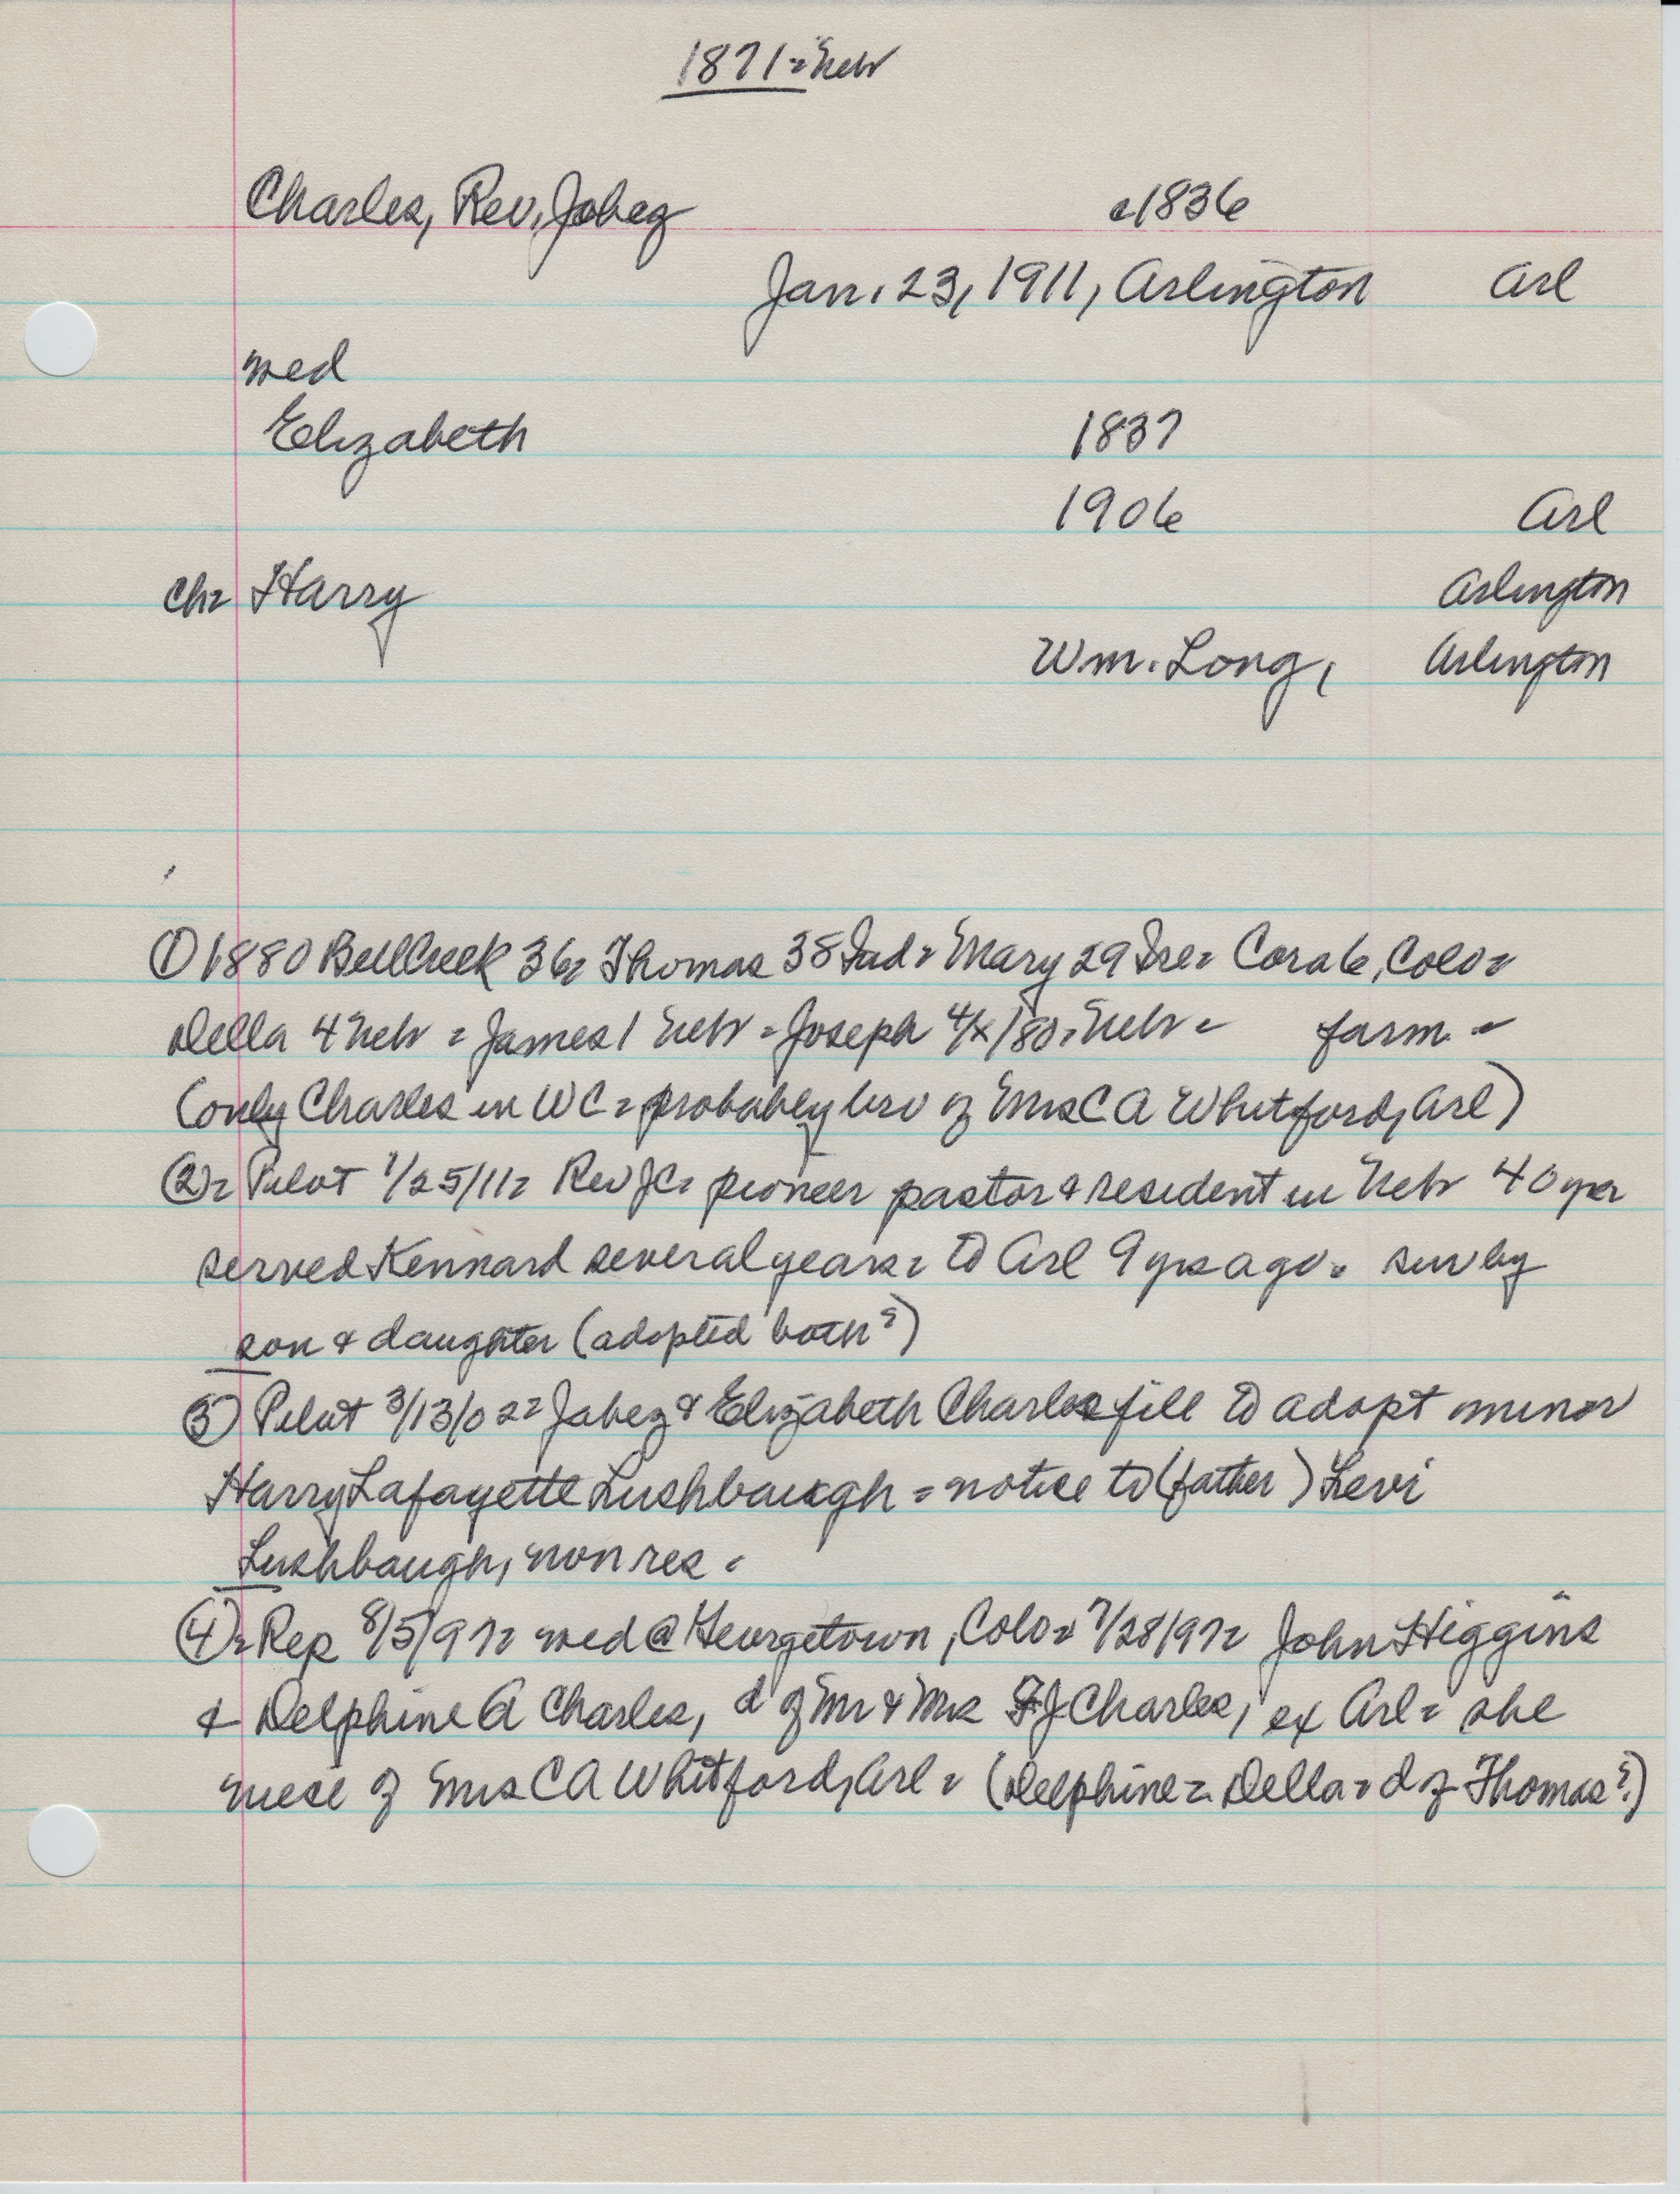 1871 = Nebr
Charles, Rev. Jabez c1836
Jan. 23, 1911, Arlington Arl
med
Elizabeth 1837
1906 Arl
ch= Harry Arlington
Wm. Long, Arlington
① 1880 BellCreek 36= Thomas 38 Ind = Mary 29 Ire = Cora 6, Colo =
Della 4 Nebr = James 1 Nebr = Joseph 4/x/80, Nebr = farm =
(only Charles in WC = probably bro of Mrs C A Whitford, Arl)
②= Pilot 1/25/11= Rev JC= pioneer pastor & resident in Nebr 40 yrs
served Kennard several years = to Arl 9 yrs ago = sur by
son & daughter (adopted both?)
③ Pilot 3/13/02= Jabez & Elizabeth Charles file to adopt minor
Harry Lafayette Lushbaugh = notice to (father) Levi
Lushbaugh, non res =
④= Rep 8/5/97= med @ Georgetown, Colo = 7/28/97= John Higgins
& Delphine A Charles, d of Mr & Mrs FJ Charles, ex Arl = she
niece of Mrs C A Whitford, Arl = (Delphine = Della = d of Thomas?)